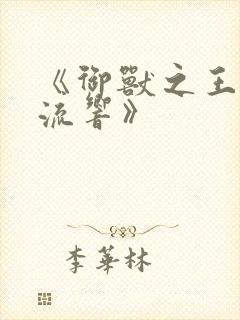 《御獸之王
流響》
李華林